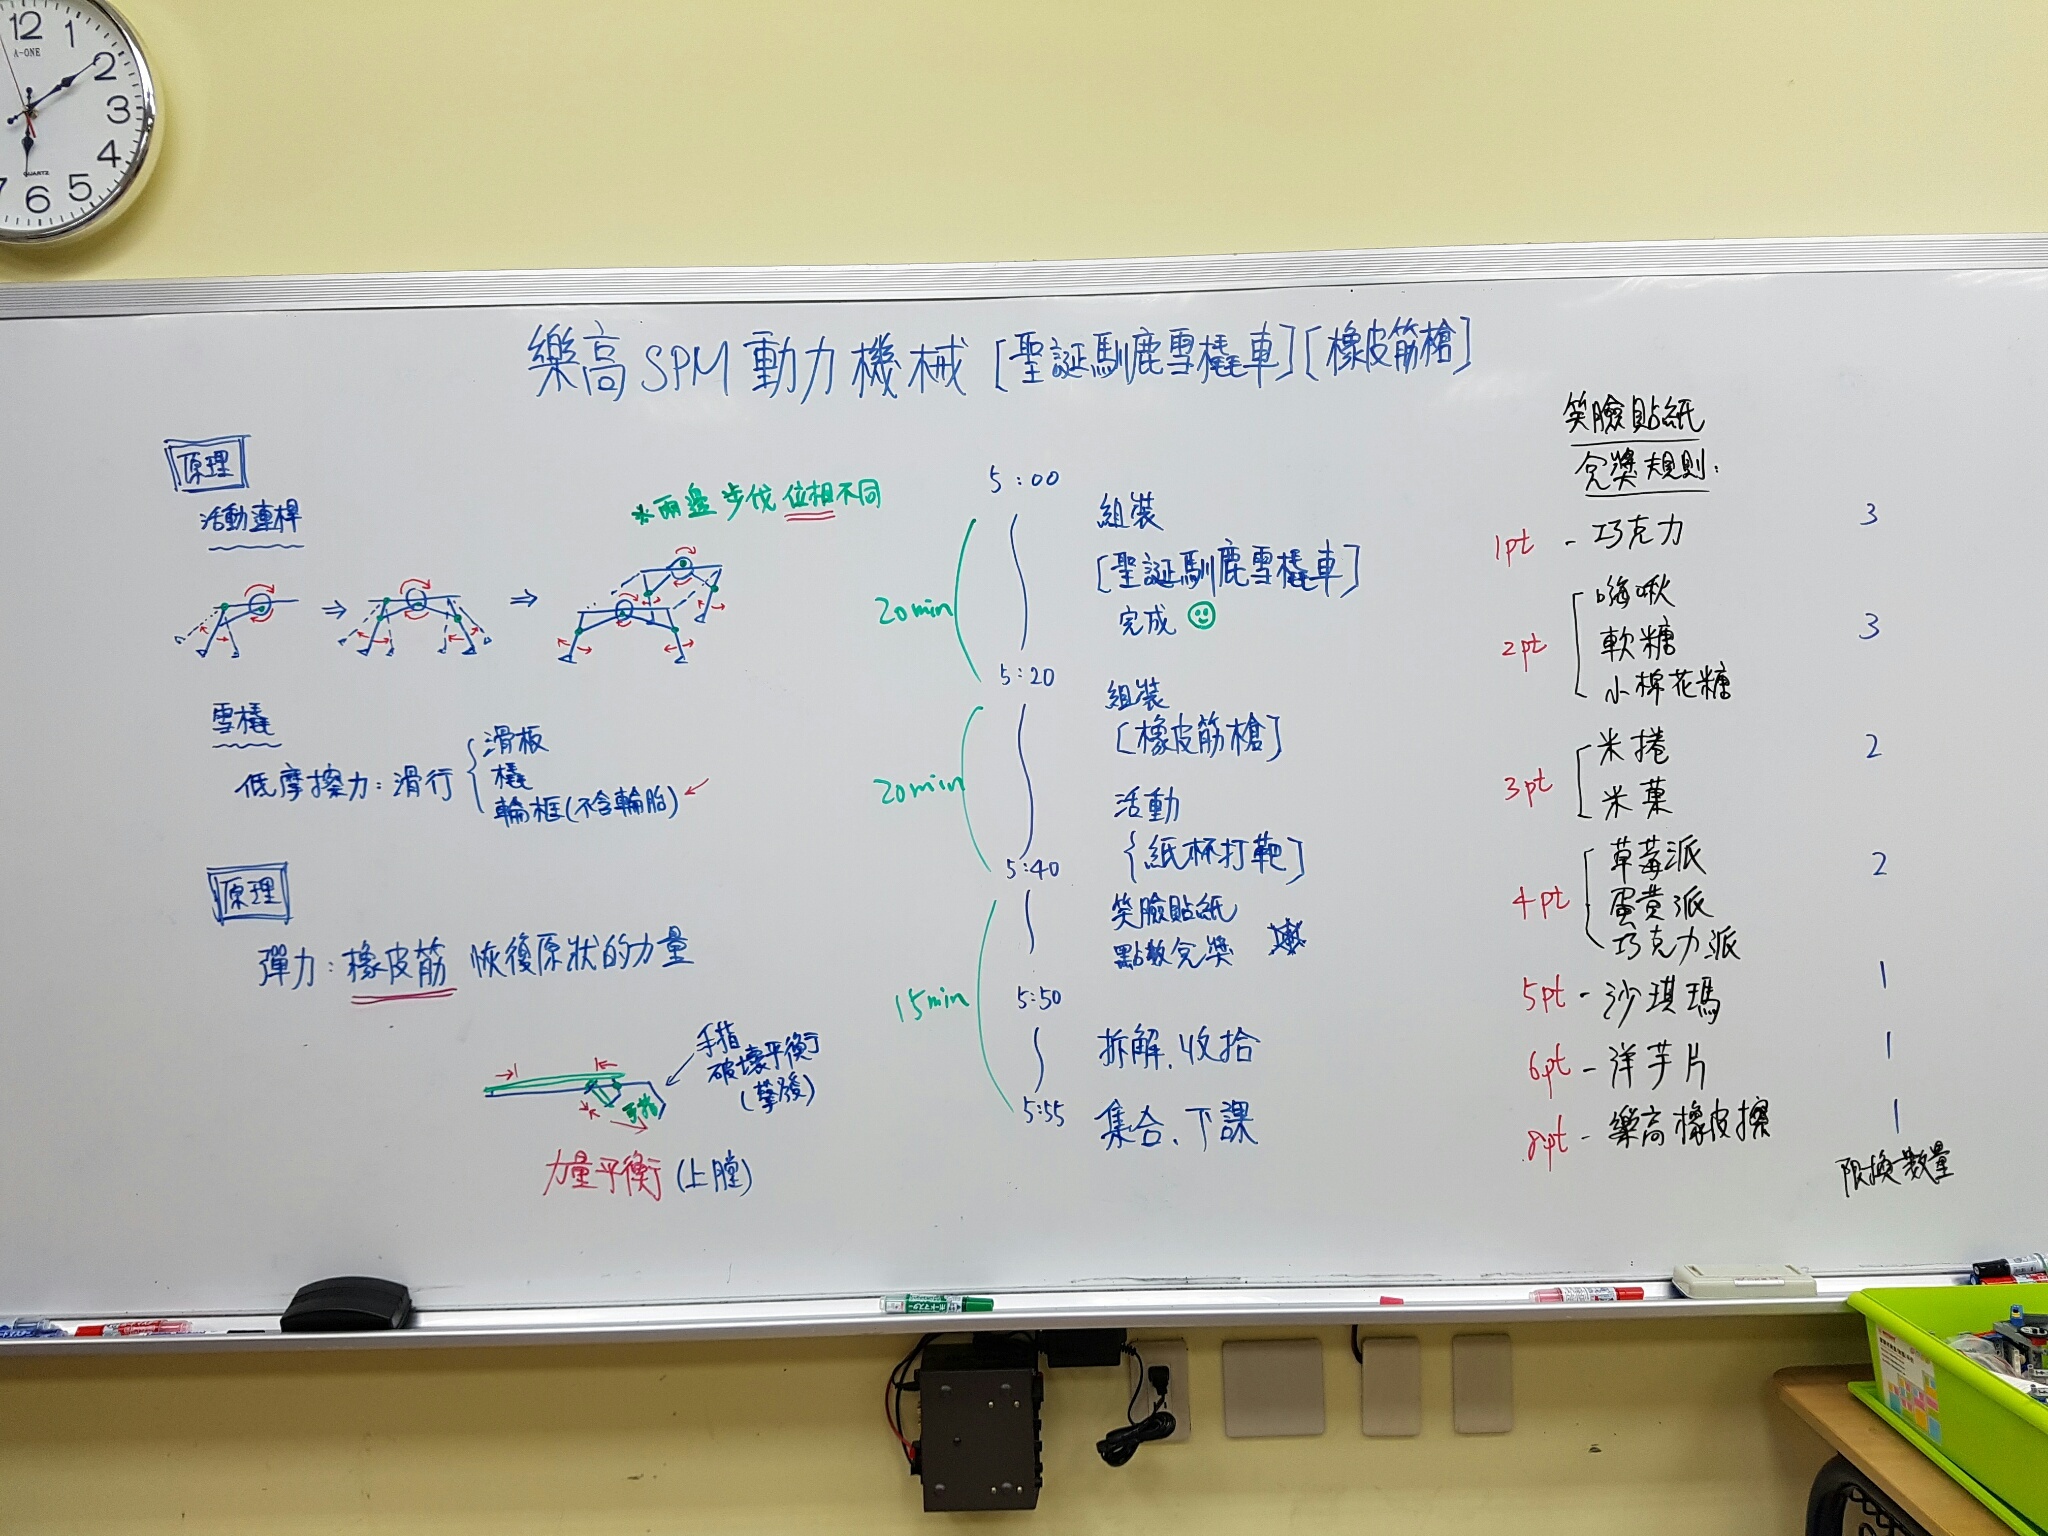 12
1
2
3
4
5
6
7
A-ONE
QUARTZ
樂高 SPM 動力機械 [聖誕馴鹿雪橇車][橡皮筋槍]
原理
活動連桿
※兩邊步伐位相不同
⇒
⇒
雪橇
低摩擦力：滑行
滑板
橇
輪框(不含輪胎)
原理
彈力：橡皮筋 恢復原狀的力量
手指
破壞平衡
(擊發)
力量平衡 (上膛)
5:00
20min
組裝
[聖誕馴鹿雪橇車]
完成
5:20
20min
組裝
[橡皮筋槍]
活動
{紙杯打靶]
5:40
15min
笑臉貼紙
點數兌獎
5:50
拆解、收拾
5:55
集合、下課
笑臉貼紙
兌獎規則:
1pt - 巧克力 3
2pt 嗨啾 3
軟糖
小棉花糖
3pt 米捲 2
米菓
4pt 草莓派 2
蛋黃派
巧克力派
5pt - 沙琪瑪 1
6pt - 洋芋片 1
8pt - 樂高橡皮擦 1
限換數量